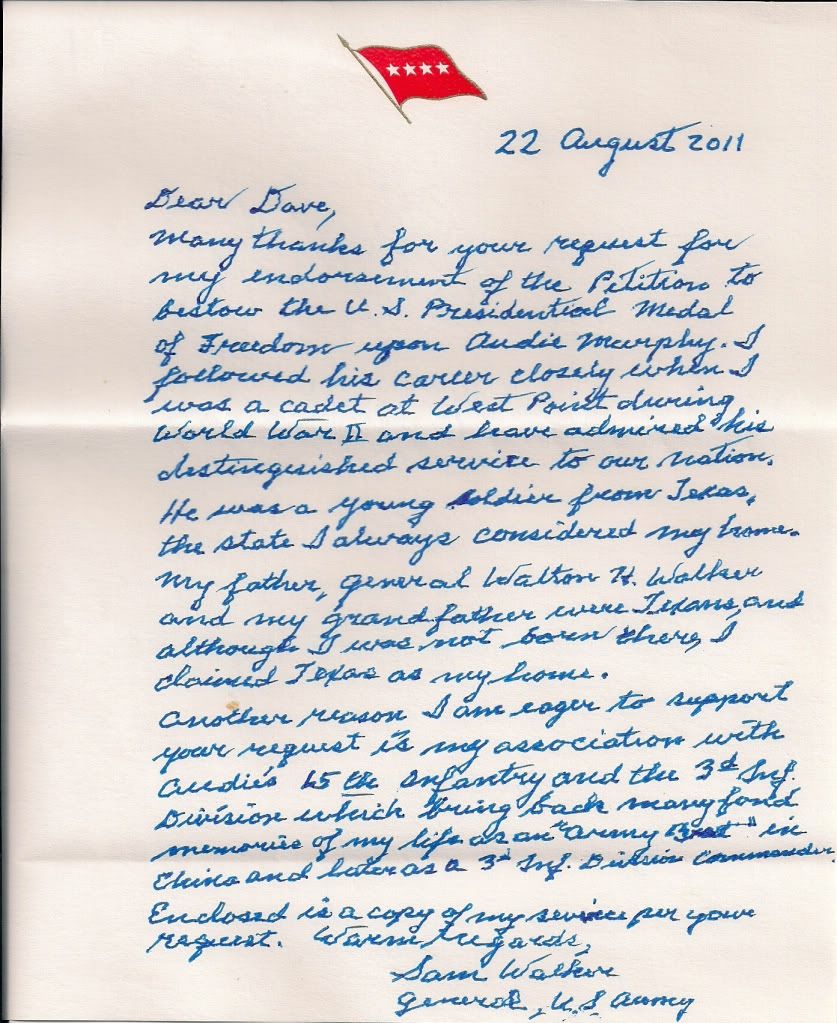 22 August 2011
Dear Dave,
Many thanks for your request for
my endorsement of the Petition to
bestow the U.S. Presidential Medal
of Freedom upon Audie Murphy. I
followed his career closely when I
was a cadet at West Point during
World War II and have admired his
distinguished service to our nation.
He was a young soldier from Texas,
the state I always considered my home.
My father, General Walton H. Walker
and my grandfather were Texans, and
although I was not born there, I
claimed Texas as my home.
Another reason I am eager to support
your request is my association with
Audie's 15th Infantry and the 3d Inf.
Division which bring back many fond
memories of my life as an "Army Brat" in
China and later as a 3d Inf. Division Commander.
Enclosed is a copy of my service per your
request. Warm regards,
Sam Walker
General, U.S. Army